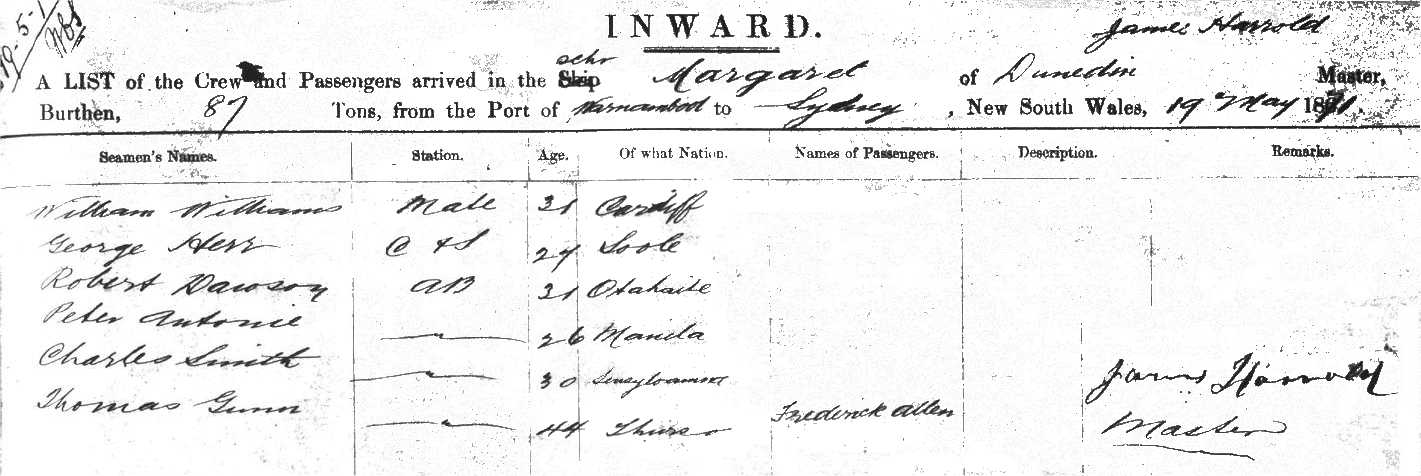 19-5-1
INWARD.
James Harrold
A LIST of the Crew and Passengers arrived in the Ship schr Margaret of Dunedin Master,
Burthen, 87 Tons, from the Port of Warnambool to Sydney, New South Wales, 19 May 1871.
Seamen's Names. Station. Age. Of what Nation. Names of Passengers. Description. Remarks.
William Williams Mate 31 Cardiff
George Herr C & S 24
Robert Dawson AB 31 Otahaite
Peter Antonie 〃 26 Manila
Charles Smith 〃 30
Thomas Gunn 〃 44 Thurso Frederick Allen
James Harrold
Master